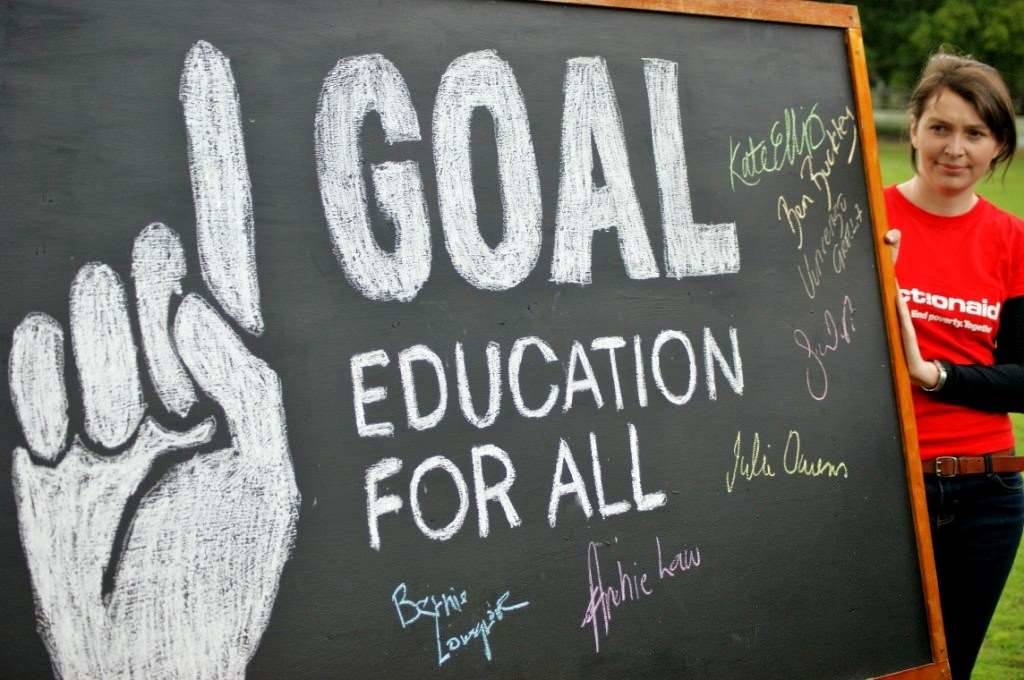 GOAL
EDUCATION
FOR ALL
Kate Ellis
Ben Buckley
Julie Owens
Bernie
Archie Law
ctionaid
End poverty. Together